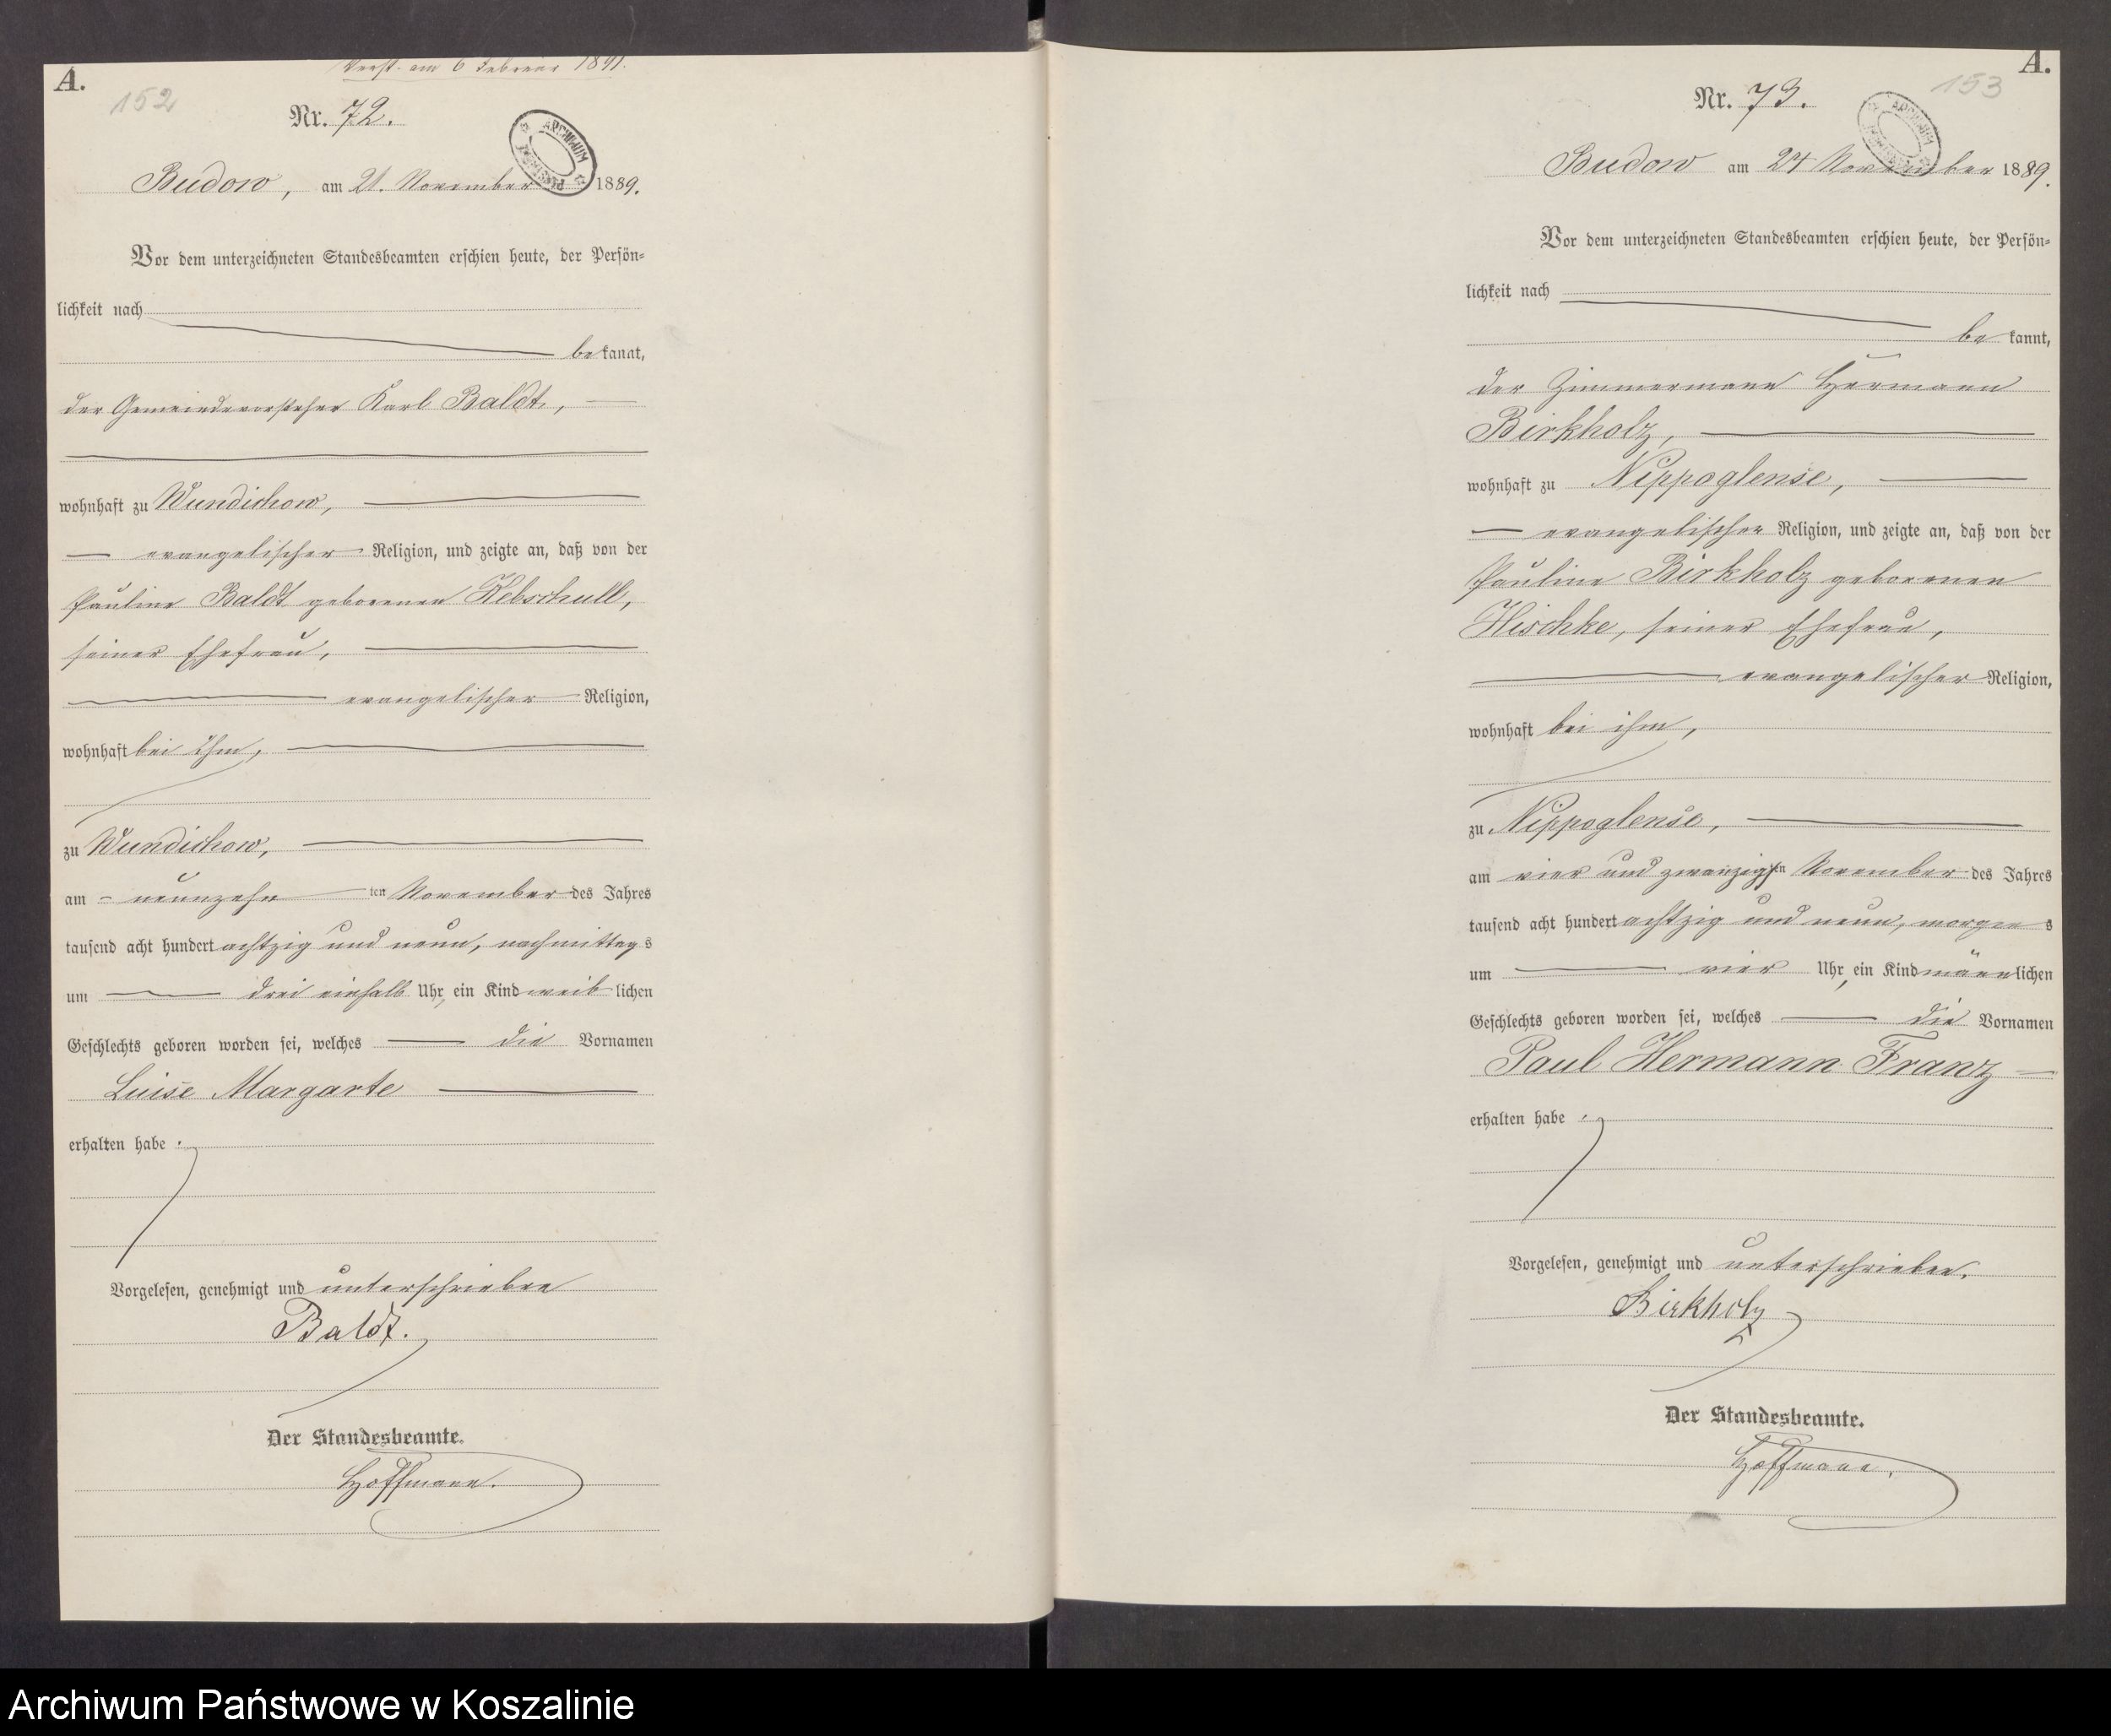 A.
152
Verst. am 6 Februar 1891.
Nr. 72.
ARCHIWUM
Budow, am 21. November 1889.
Vor dem unterzeichneten Standesbeamten erschien heute, der Persön=
lichkeit nach
be kannt,
der Gemeindevorsteher Karl Baldt,
wohnhaft zu Wundichow,
evangelischer Religion, und zeigte an, daß von der
Pauline Baldt geborenen Kebschull,
seiner Ehefrau,
evangelischer Religion,
wohnhaft bei ihm,
zu Wundichow,
am neunzehn ten November des Jahres
tausend acht hundert achtzig und neun, nachmittag s
um drei einhalb Uhr, ein Kind weib lichen
Geschlechts geboren worden sei, welches die Vornamen
Luise Margarte
erhalten habe.
Vorgelesen, genehmigt und unterschrieben
Baldt.
Der Standesbeamte.
Hoffmann.
A.
153
Nr. 73.
ARCHIWUM
Budow am 24 November 1889.
Vor dem unterzeichneten Standesbeamten erschien heute, der Persön=
lichkeit nach
be kannt,
der Zimmermann Hermann
Birkholz,
wohnhaft zu Nippoglense,
evangelischer Religion, und zeigte an, daß von der
Pauline Birkholz geborenen
Hischke, seiner Ehefrau,
evangelischer Religion,
wohnhaft bei ihm,
zu Nippoglense,
am vier und zwanzigsten November des Jahres
tausend acht hundert achtzig und neun, morgen s
um vier Uhr, ein Kind männ lichen
Geschlechts geboren worden sei, welches die Vornamen
Paul Hermann Franz
erhalten habe.
Vorgelesen, genehmigt und unterschrieben.
Birkholz
Der Standesbeamte.
Hoffmann.
Archiwum Państwowe w Koszalinie